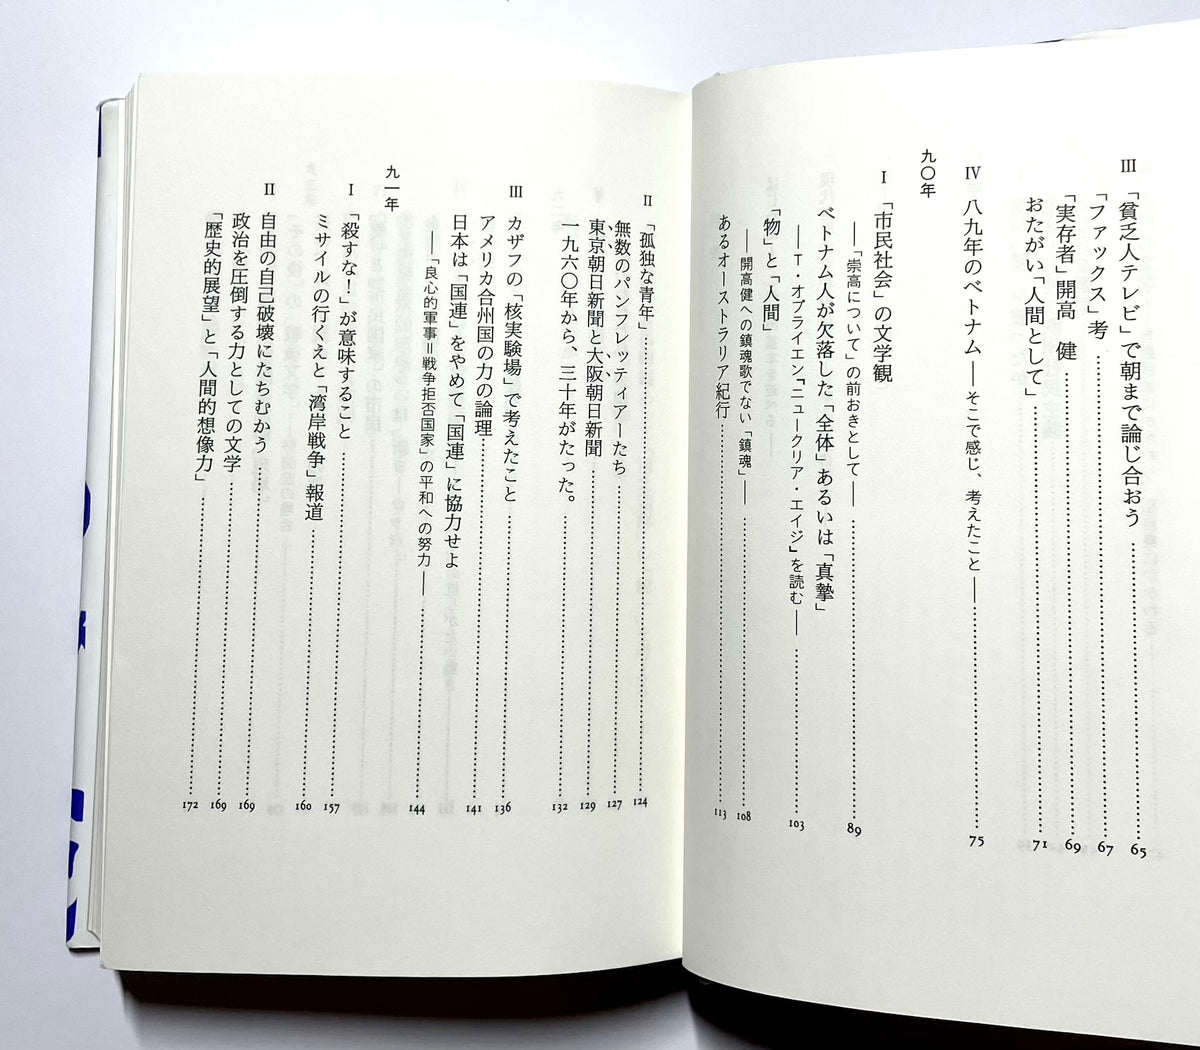 Ⅲ 「貧乏人テレビ」で朝まで論じ合おう……65
「ファックス」考……67
「実存者」開高 健……69
おたがい「人間として」……71
Ⅳ 八九年のベトナム――そこで感じ、考えたこと――……75
九〇年
Ⅰ 「市民社会」の文学観
――「崇高について」の前おきとして――……89
ベトナム人が欠落した「全体」あるいは「真摯」
――T・オブライエン『ニュークリア・エイジ』を読む――……103
「物」と「人間」
――開高健への鎮魂歌でない「鎮魂」――……108
あるオーストラリア紀行……113
Ⅱ 「孤独な青年」……124
無数のパンフレッティアーたち……127
東京朝日新聞と大阪朝日新聞……129
一九六〇年から、三十年がたった。……132
Ⅲ カザフの「核実験場」で考えたこと……136
アメリカ合州国の力の論理……141
日本は「国連」をやめて「国連」に協力せよ
――「良心的軍事=戦争拒否国家」の平和への努力――……144
九一年
Ⅰ 「殺すな!」が意味すること……157
ミサイルの行くえと「湾岸戦争」報道……160
Ⅱ 自由の自己破壊にたちむかう……169
政治を圧倒する力としての文学……169
「歴史的展望」と「人間的想像力」……172